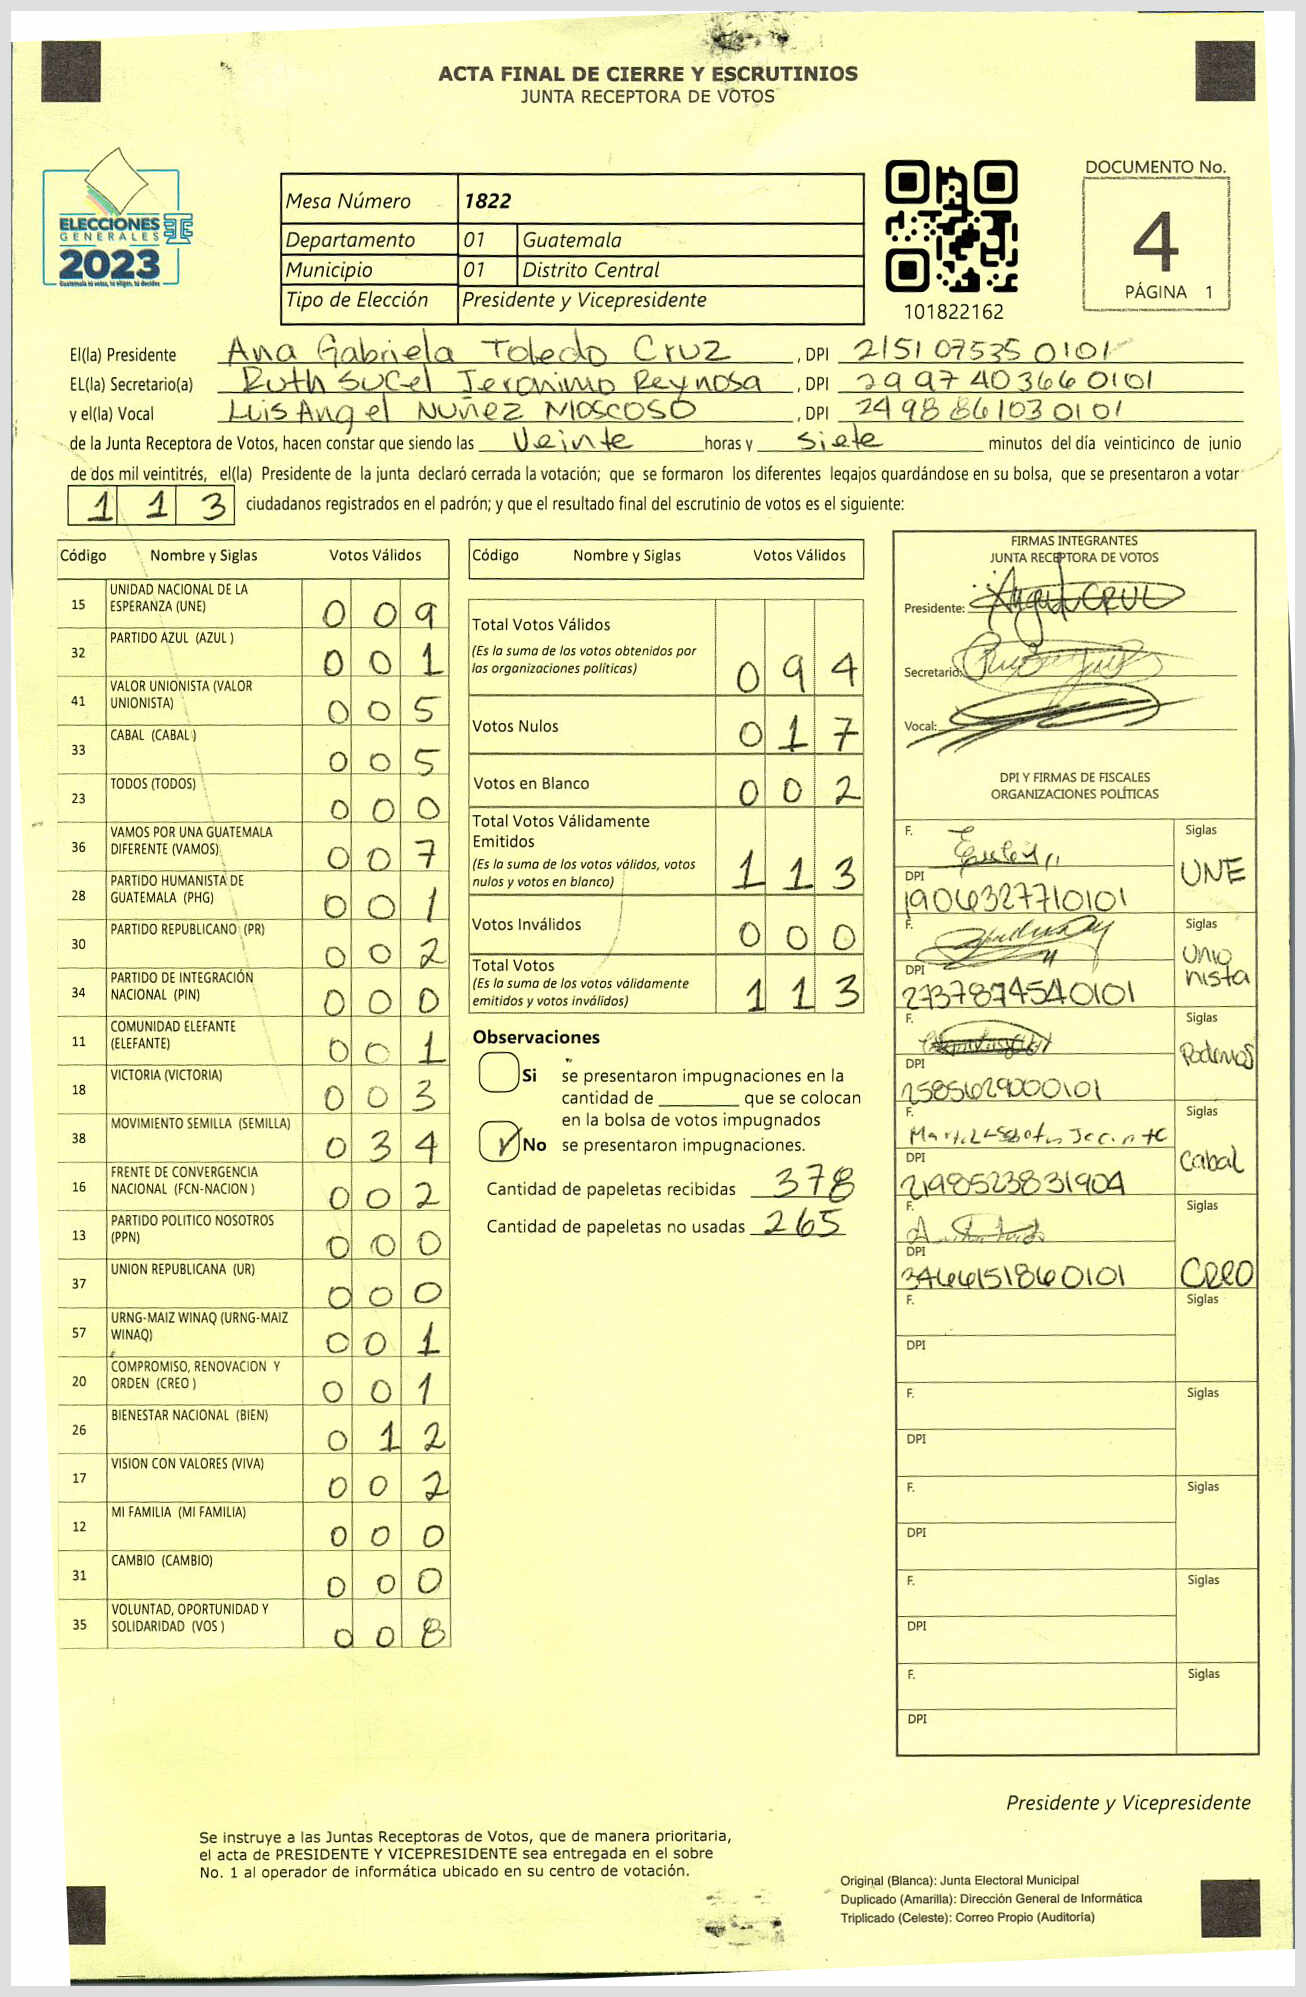 ACTA FINAL DE CIERRE Y ESCRUTINIOS
JUNTA RECEPTORA DE VOTOS
ELECCIONES
GENERALES
2023
Guatemala tú votas, tú eliges, tú decides
Mesa Número 1822
Departamento 01 Guatemala
Municipio 01 Distrito Central
Tipo de Elección Presidente y Vicepresidente
101822162
DOCUMENTO No.
4
PÁGINA 1
El(la) Presidente Ana Gabriela Toledo Cruz , DPI 2151 07535 0101
EL(la) Secretario(a) Ruth Sucel Jeronimo Reynosa , DPI 2997 40366 0101
y el(la) Vocal Luis Angel Nuñez Moscoso , DPI 2498 86103 0101
de la Junta Receptora de Votos, hacen constar que siendo las Veinte horas y siete minutos del día veinticinco de junio
de dos mil veintitrés, el(la) Presidente de la junta declaró cerrada la votación; que se formaron los diferentes legajos guardándose en su bolsa, que se presentaron a votar
113 ciudadanos registrados en el padrón; y que el resultado final del escrutinio de votos es el siguiente:
Código Nombre y Siglas Votos Válidos
15 UNIDAD NACIONAL DE LA ESPERANZA (UNE) 009
32 PARTIDO AZUL (AZUL ) 001
41 VALOR UNIONISTA (VALOR UNIONISTA) 005
33 CABAL (CABAL ) 005
23 TODOS (TODOS) 000
36 VAMOS POR UNA GUATEMALA DIFERENTE (VAMOS) 007
28 PARTIDO HUMANISTA DE GUATEMALA (PHG) 001
30 PARTIDO REPUBLICANO (PR) 002
34 PARTIDO DE INTEGRACIÓN NACIONAL (PIN) 000
11 COMUNIDAD ELEFANTE (ELEFANTE) 001
18 VICTORIA (VICTORIA) 003
38 MOVIMIENTO SEMILLA (SEMILLA) 034
16 FRENTE DE CONVERGENCIA NACIONAL (FCN-NACION ) 002
13 PARTIDO POLITICO NOSOTROS (PPN) 000
37 UNION REPUBLICANA (UR) 000
57 URNG-MAIZ WINAQ (URNG-MAIZ WINAQ) 001
20 COMPROMISO, RENOVACION Y ORDEN (CREO ) 001
26 BIENESTAR NACIONAL (BIEN) 012
17 VISION CON VALORES (VIVA) 002
12 MI FAMILIA (MI FAMILIA) 000
31 CAMBIO (CAMBIO) 000
35 VOLUNTAD, OPORTUNIDAD Y SOLIDARIDAD (VOS ) 008
Código Nombre y Siglas Votos Válidos
Total Votos Válidos 094
(Es la suma de los votos obtenidos por
las organizaciones políticas)
Votos Nulos 017
Votos en Blanco 002
Total Votos Válidamente
Emitidos 113
(Es la suma de los votos válidos, votos
nulos y votos en blanco)
Votos Inválidos 000
Total Votos 113
(Es la suma de los votos válidamente
emitidos y votos inválidos)
Observaciones
Si se presentaron impugnaciones en la
cantidad de ________ que se colocan
en la bolsa de votos impugnados
No se presentaron impugnaciones.
Cantidad de papeletas recibidas 378
Cantidad de papeletas no usadas 265
FIRMAS INTEGRANTES
JUNTA RECEPTORA DE VOTOS
Presidente:
Secretario:
Vocal:
DPI Y FIRMAS DE FISCALES
ORGANIZACIONES POLÍTICAS
F. Siglas UNE
DPI 1906327710101
F. Siglas Unionista
DPI 2737874540101
F. Siglas Podemos
DPI 2585629000101
F. Siglas Cabal
DPI 2198523831904
F. Siglas CREO
DPI 3466151860101
F. Siglas
DPI
F. Siglas
DPI
F. Siglas
DPI
F. Siglas
DPI
F. Siglas
DPI
Presidente y Vicepresidente
Se instruye a las Juntas Receptoras de Votos, que de manera prioritaria,
el acta de PRESIDENTE Y VICEPRESIDENTE sea entregada en el sobre
No. 1 al operador de informática ubicado en su centro de votación.
Original (Blanca): Junta Electoral Municipal
Duplicado (Amarilla): Dirección General de Informática
Triplicado (Celeste): Correo Propio (Auditoría)